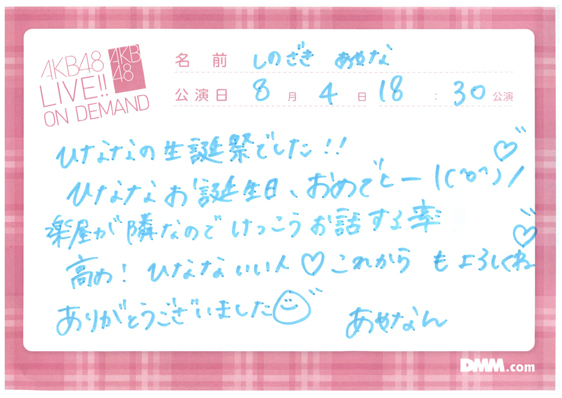 AKB48
LIVE!!
ON DEMAND
AKB
48
名前 しのざき あやな
公演日 8月4日 18:30公演
ひななの生誕祭でした!!
ひななお誕生日、おめでとー\(^o^)/
楽屋が隣なのでけっこうお話する率
高め! ひなないい人♡これからもよろしくね
ありがとうございました
あやなん
DMM.com